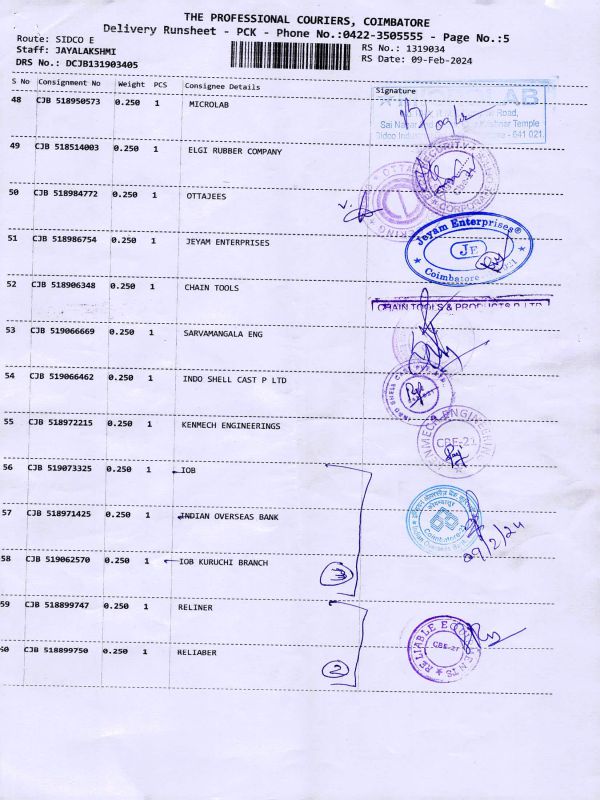 THE PROFESSIONAL COURIERS, COIMBATORE
Delivery Runsheet - PCK - Phone No.:0422-3505555 - Page No.:5
Route: SIDCO E
Staff: JAYALAKSHMI
DRS No.: DCJB131903405
RS No.: 1319034
RS Date: 09-Feb-2024
S No Consignment No Weight PCS Consignee Details Signature
48 CJB 518950573 0.250 1 MICROLAB
Road,
Sai Nagar Temple
Sidco - 641 021.
49 CJB 518514003 0.250 1 ELGI RUBBER COMPANY
50 CJB 518984772 0.250 1 OTTAJEES
51 CJB 518986754 0.250 1 JEYAM ENTERPRISES
Jeyam Enterprises®
JE
Coimbatore
52 CJB 518906348 0.250 1 CHAIN TOOLS
CHAIN TOOLS & PRODUCTS P LTD
53 CJB 519066669 0.250 1 SARVAMANGALA ENG
54 CJB 519066462 0.250 1 INDO SHELL CAST P LTD
INDO SHELL CAST
55 CJB 518972215 0.250 1 KENMECH ENGINEERINGS
KENMECH ENGINEERING
CBE-21
56 CJB 519073325 0.250 1 IOB
57 CJB 518971425 0.250 1 INDIAN OVERSEAS BANK
Coimbatore
Indian Overseas Bank
09/2/24
58 CJB 519062570 0.250 1 IOB KURUCHI BRANCH
3
59 CJB 518899747 0.250 1 RELINER
RELIABLE EQUIPMENTS
CBE-21
60 CJB 518899750 0.250 1 RELIABER
2